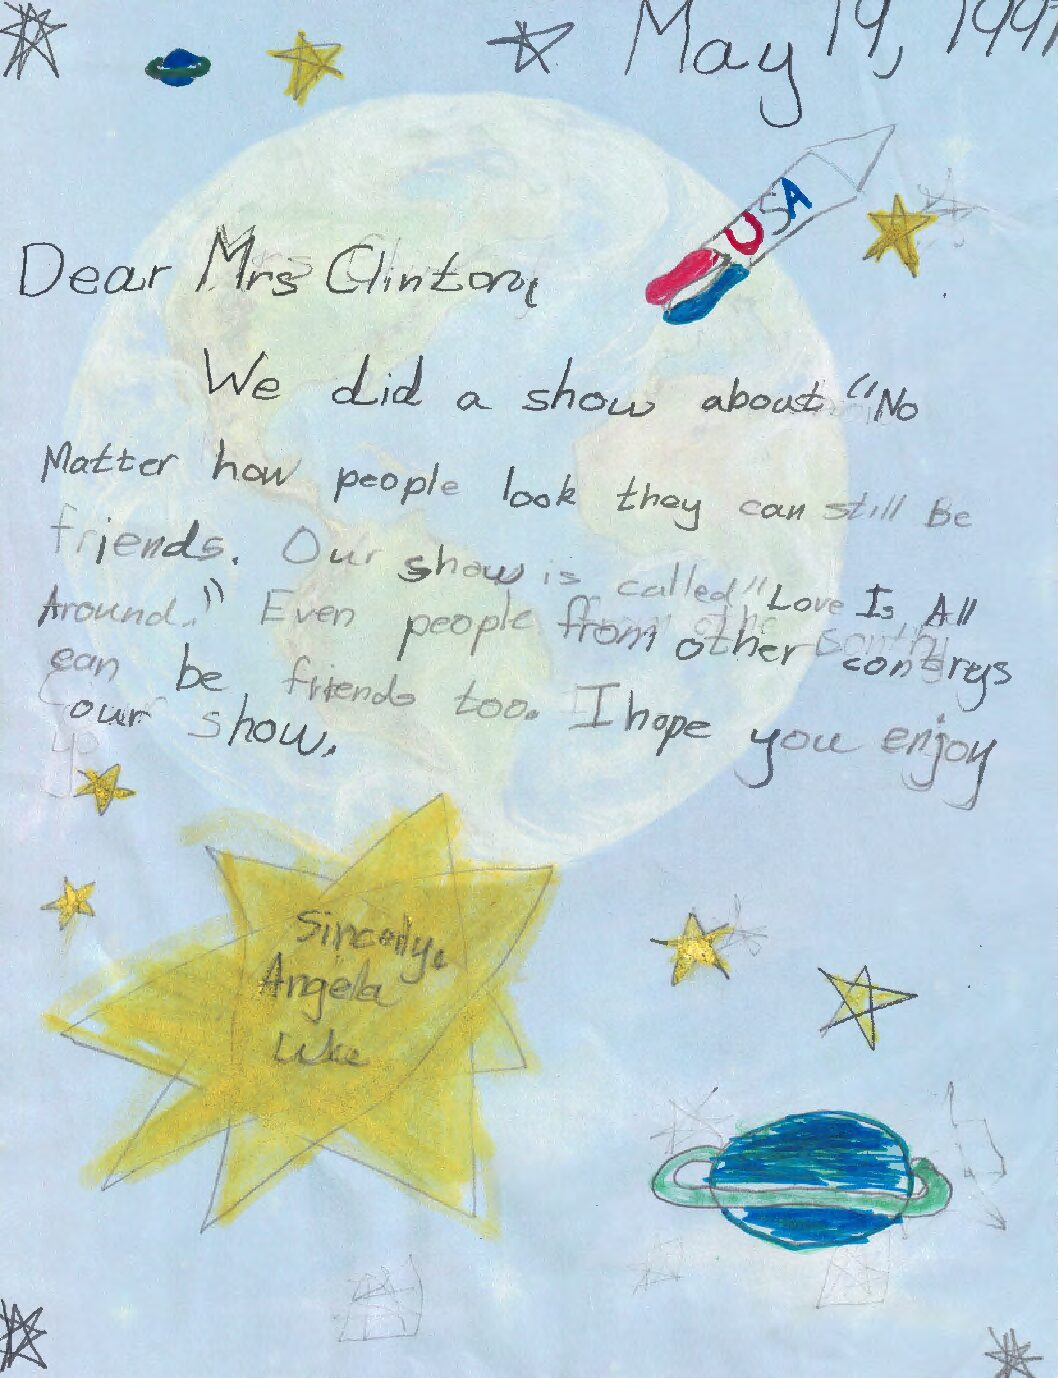 May 19, 1997
USA
Dear Mrs Clinton,
We did a show about "No
Matter how people look they can still be
friends. Our show is called "Love Is All
Around." Even people from other contrys
can be friends too. I hope you enjoy
our show.
Sincerily,
Angela
Luke